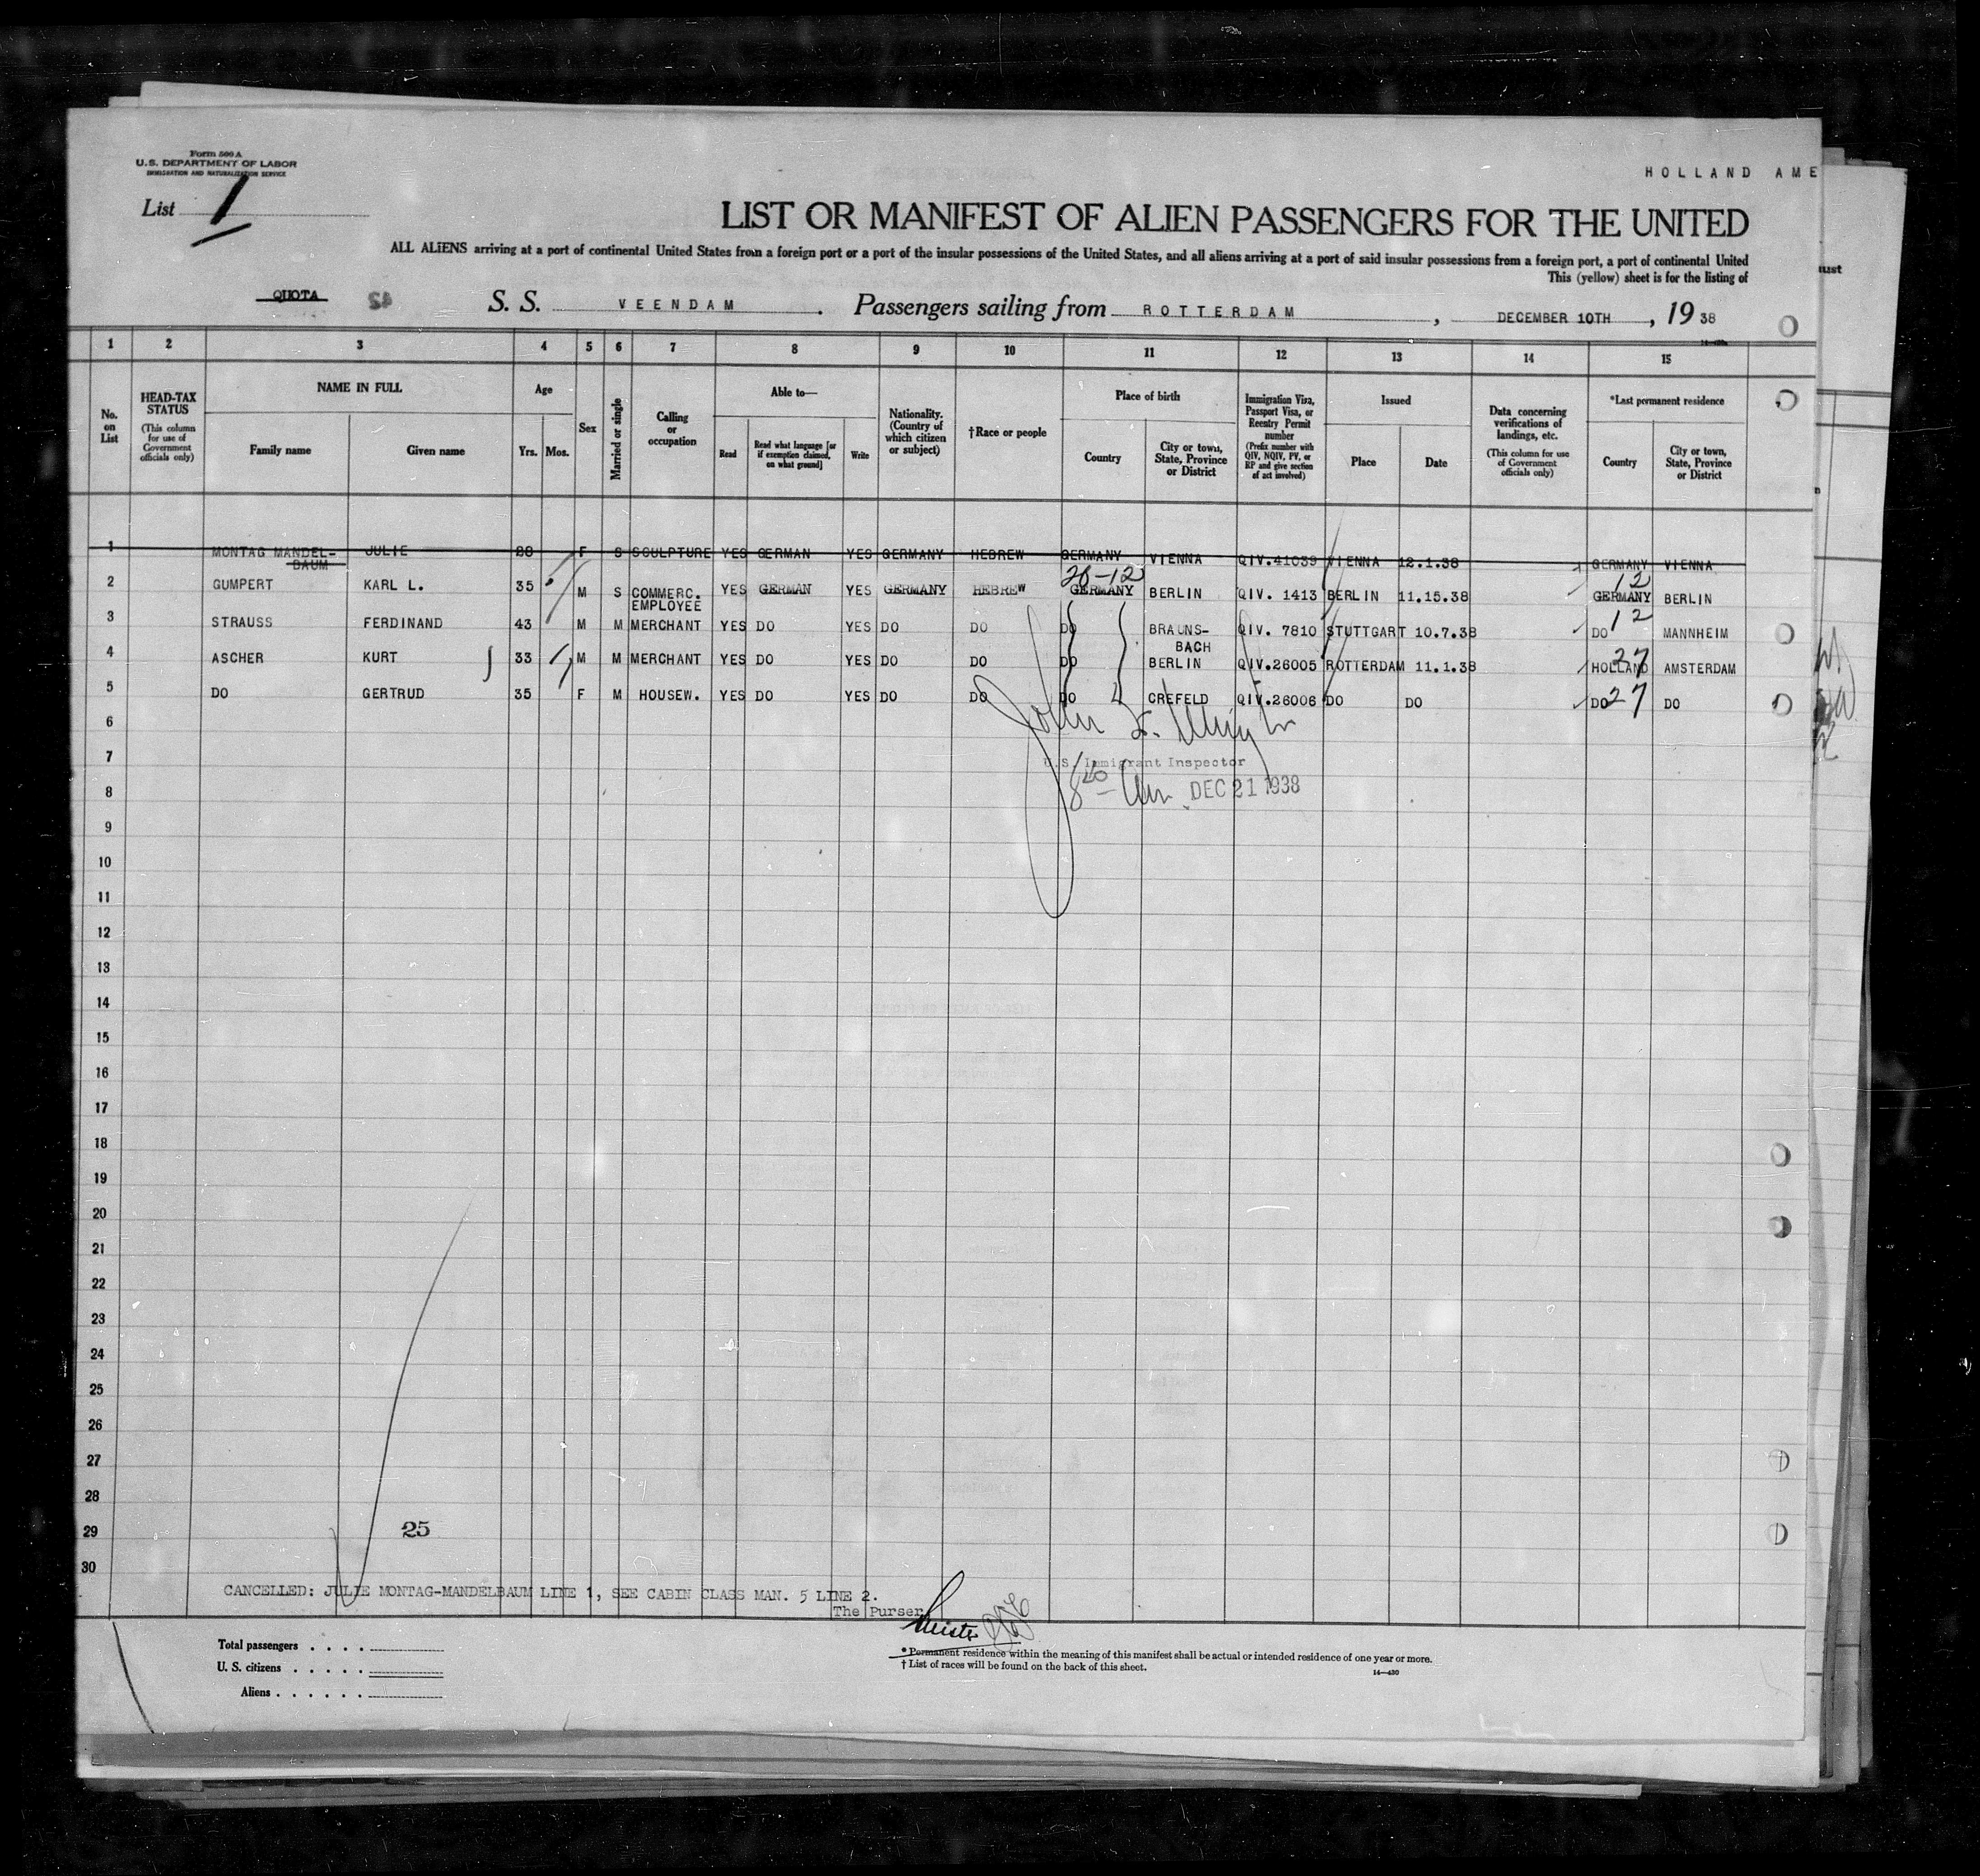 Form 500 A
U.S. DEPARTMENT OF LABOR
IMMIGRATION AND NATURALIZATION SERVICE
HOLLAND AME
List 1
LIST OR MANIFEST OF ALIEN PASSENGERS FOR THE UNITED
ALL ALIENS arriving at a port of continental United States from a foreign port or a port of the insular possessions of the United States, and all aliens arriving at a port of said insular possessions from a foreign port, a port of continental United
This (yellow) sheet is for the listing of
QUOTA 42 S. S. VEENDAM. Passengers sailing from ROTTERDAM, DECEMBER 10TH, 1938
1 2 3 4 5 6 7 8 9 10 11 12 13 14 15
No. on List
HEAD-TAX STATUS (This column for use of Government officials only)
NAME IN FULL
Family name
Given name
Age
Yrs. Mos.
Sex
Married or single
Calling or occupation
Able to—
Read
Read what language [or if exemption claimed, on what ground]
Write
Nationality. (Country of which citizen or subject)
†Race or people
Place of birth
Country
City or town, State, Province or District
Immigration Visa, Passport Visa, or Reentry Permit number (Prefix number with QIV, NQIV, PV, or RP and give section of act involved)
Issued
Place
Date
Data concerning verifications of landings, etc. (This column for use of Government officials only)
*Last permanent residence
Country
City or town, State, Province or District
1 MONTAG MANDEL- JULIE 28 F S SCULPTURE YES GERMAN YES GERMANY HEBREW GERMANY VIENNA QIV.41039 VIENNA 12.1.38 GERMANY VIENNA
BAUM
26-12 12
2 GUMPERT KARL L. 35 M S COMMERC. YES GERMAN YES GERMANY HEBREW GERMANY BERLIN QIV. 1413 BERLIN 11.15.38 GERMANY BERLIN
EMPLOYEE
3 STRAUSS FERDINAND 43 M M MERCHANT YES DO YES DO DO DO BRAUNS- QIV. 7810 STUTTGART 10.7.38 DO 12 MANNHEIM
BACH
4 ASCHER KURT 33 M M MERCHANT YES DO YES DO DO DO BERLIN QIV.26005 ROTTERDAM 11.1.38 HOLLAND 27 AMSTERDAM
5 DO GERTRUD 35 F M HOUSEW. YES DO YES DO DO DO CREFELD QIV.26006 DO DO DO 27 DO
6
7
U.S. Immigrant Inspector
8
DEC 21 1938
9
10
11
12
13
14
15
16
17
18
19
20
21
22
23
24
25
26
27
28
29
25
30
CANCELLED: JULIE MONTAG-MANDELBAUM LINE 1, SEE CABIN CLASS MAN. 5 LINE 2.
The Purser
Total passengers . . . .
U. S. citizens . . . . .
Aliens . . . . . .
* Permanent residence within the meaning of this manifest shall be actual or intended residence of one year or more.
† List of races will be found on the back of this sheet.
14—430